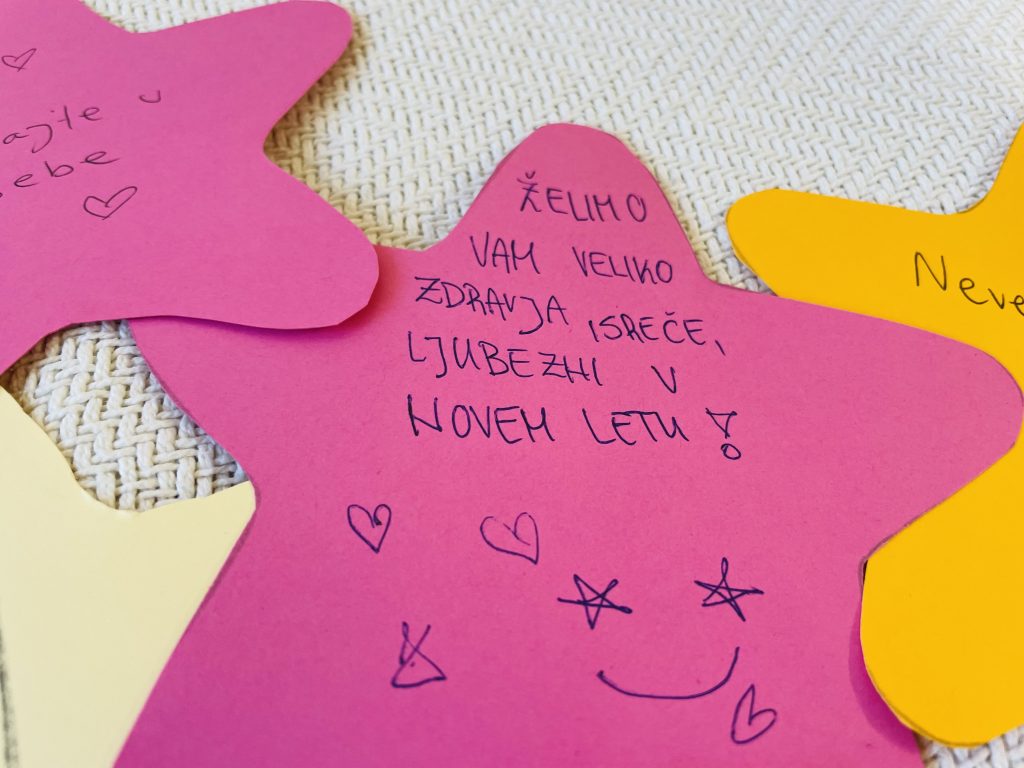 ajte v
sebe
ŽELIMO
VAM VELIKO
ZDRAVJA ISREČE,
LJUBEZNI V
NOVEM LETU!
Neve